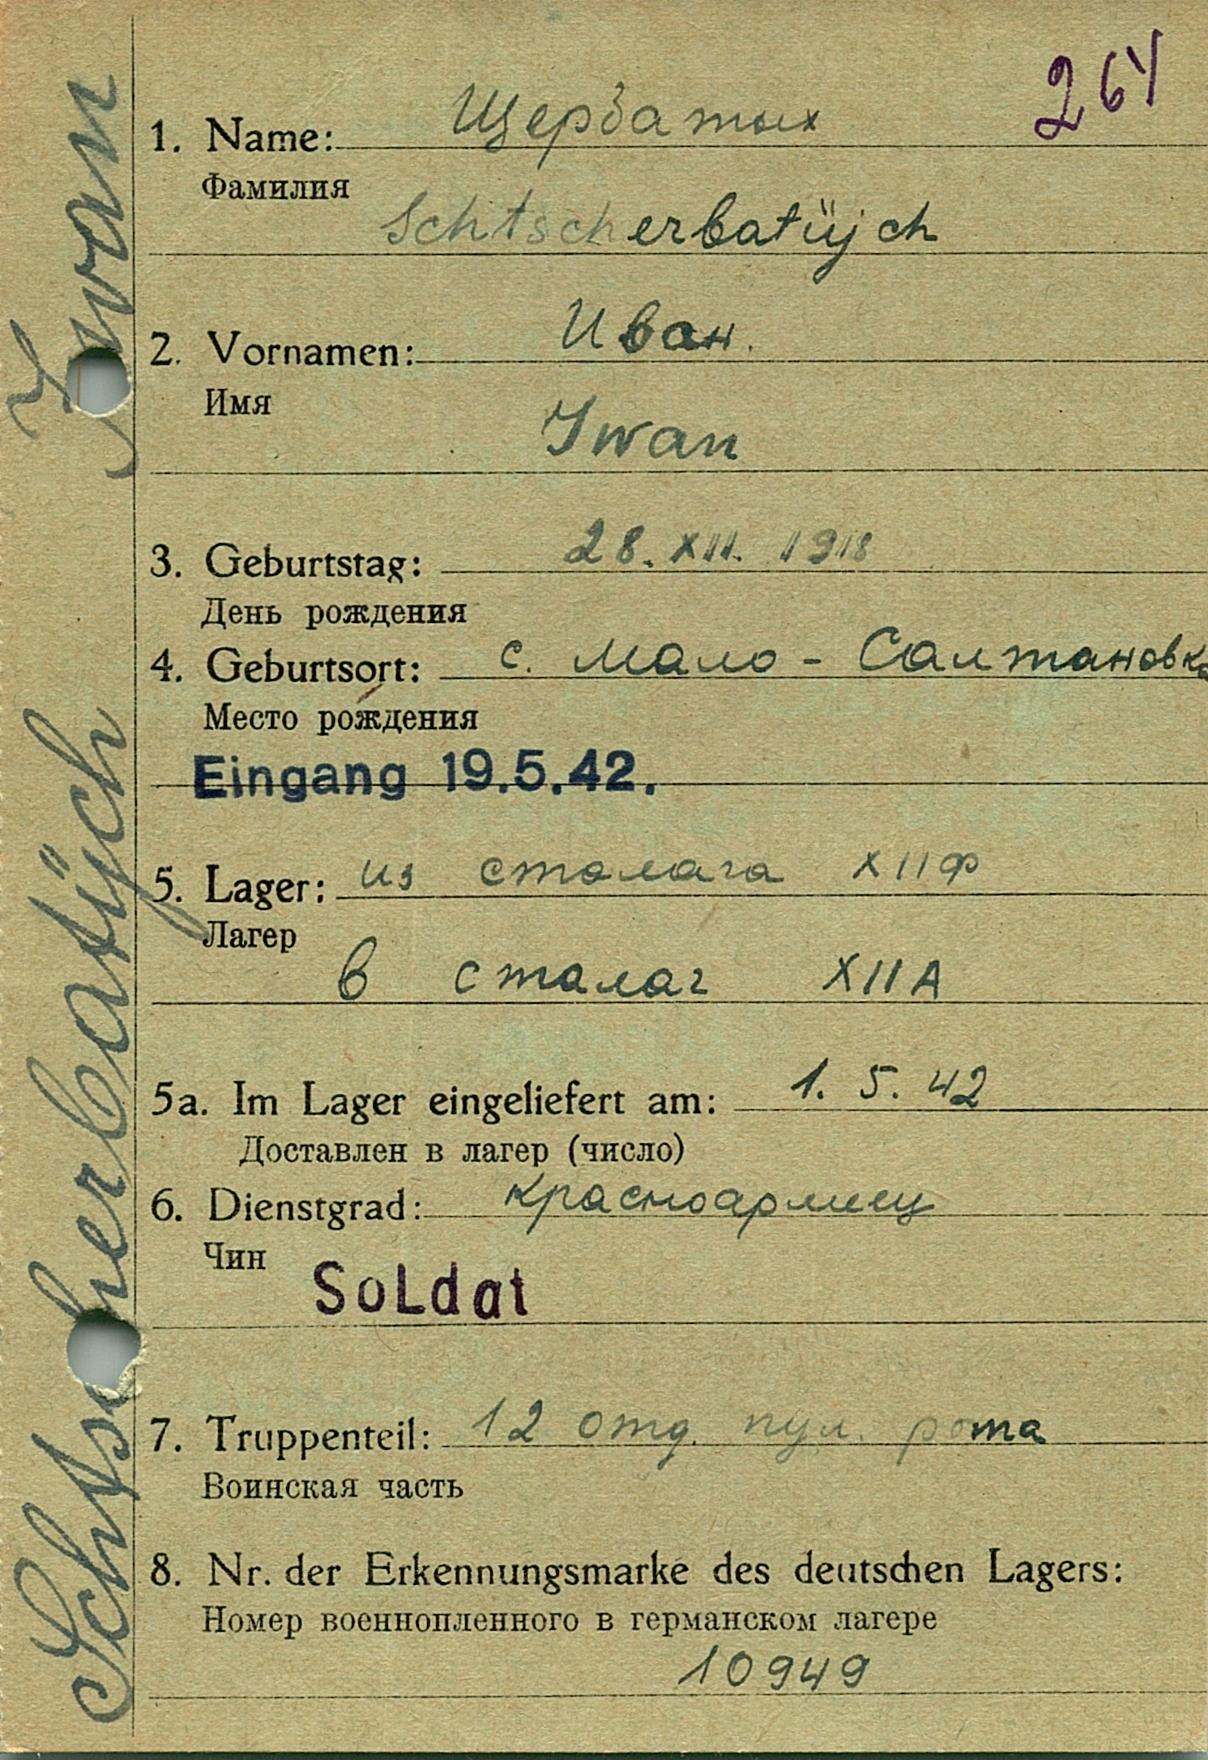 264
1. Name: Щербатых
Фамилия
Schtscherbatüjch
2. Vornamen: Иван.
Имя
Iwan
3. Geburtstag: 28. XII. 1918
День рождения
4. Geburtsort: с. Мало - Салтановка
Место рождения
Eingang 19.5.42.
5. Lager: из сталага XIIФ
Лагер
в сталаг XIIA
5a. Im Lager eingeliefert am: 1. 5. 42
Доставлен в лагер (число)
6. Dienstgrad: красноармеец
Чин
Soldat
7. Truppenteil: 12 отд. пул. рота
Воинская часть
8. Nr. der Erkennungsmarke des deutschen Lagers:
Номер военнопленного в германском лагере
10949
Schtscherbatüjch Iwan